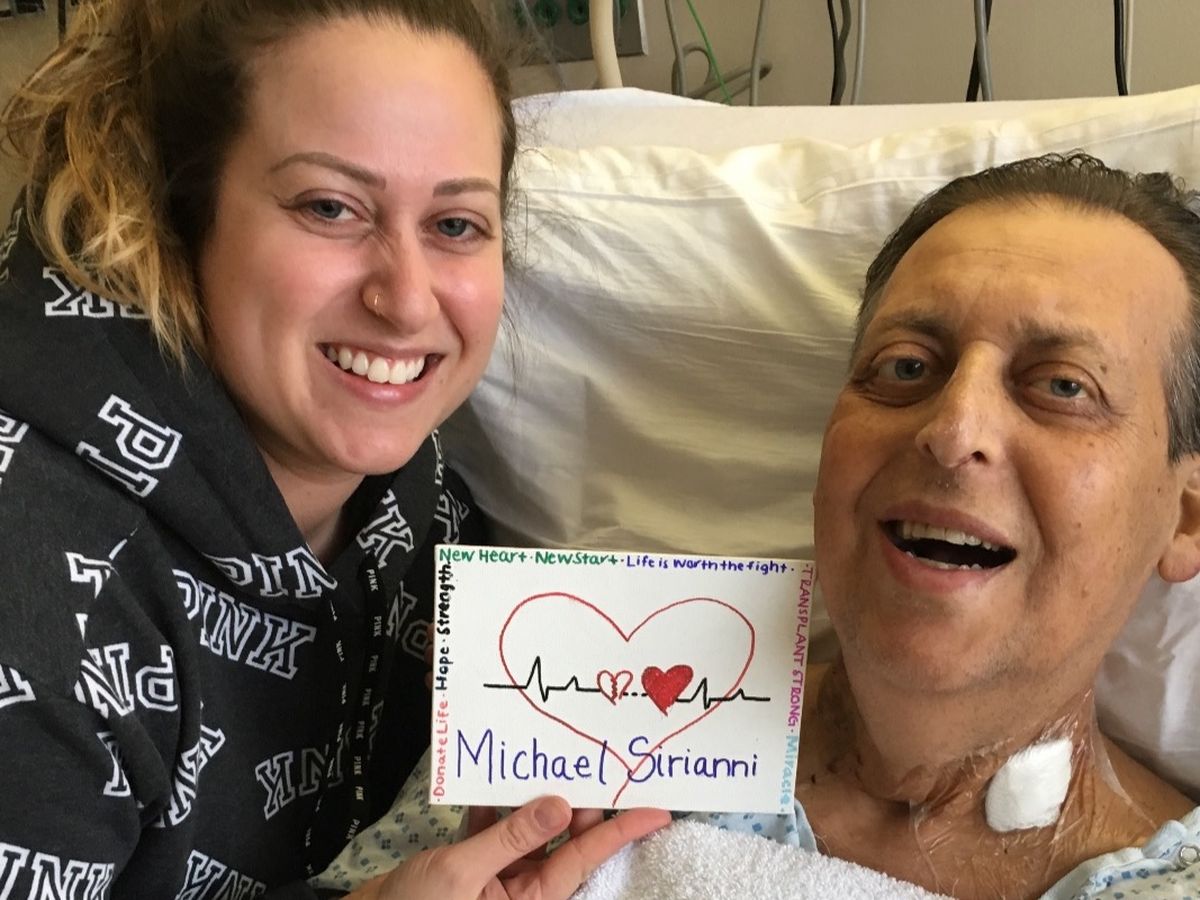 New Heart · New Start · Life is worth the fight ·
TRANSPLANT STRONG · Miracle ·
· Donate Life · Hope · Strength ·
Michael Sirianni
PINK
PINK
PINK
PINK
PINK
PINK
PINK
PINK